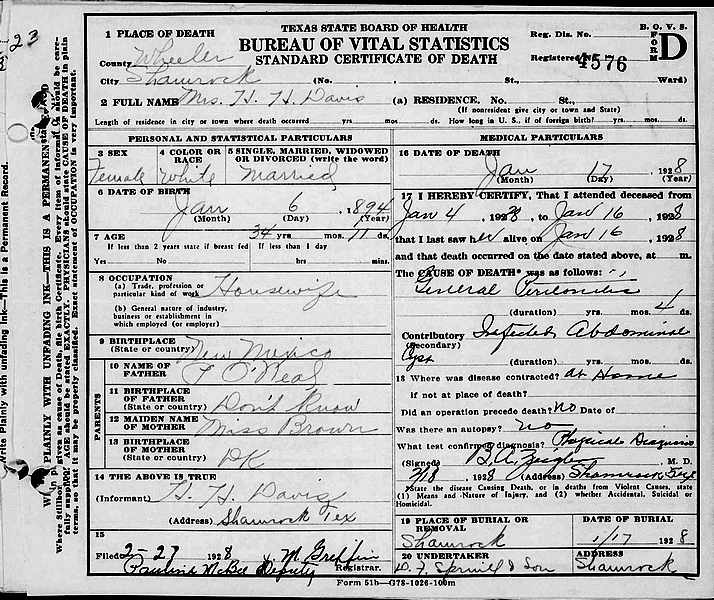 TEXAS STATE BOARD OF HEALTH
BUREAU OF VITAL STATISTICS
STANDARD CERTIFICATE OF DEATH
Reg. Dis. No.
B. O. V. S.
FORM D
Registered No. 4576
23
1 PLACE OF DEATH
County Wheeler
City Shamrock (No. , St., Ward)
2 FULL NAME Mrs. H. H. Davis (a) RESIDENCE. No. St.,
(If nonresident give city or town and State)
Length of residence in city or town where death occurred yrs. mos. ds. How long in U. S., if of foreign birth? yrs. mos. ds.
PERSONAL AND STATISTICAL PARTICULARS
3 SEX Female
4 COLOR OR RACE White
5 SINGLE, MARRIED, WIDOWED OR DIVORCED (write the word) Married
6 DATE OF BIRTH
Jan 6 1894
(Month) (Day) (Year)
7 AGE 34 yrs. mos. 11 ds.
If less than 2 years state if breast fed If less than 1 day
Yes No hrs mins.
8 OCCUPATION
(a) Trade, profession or particular kind of work Housewife
(b) General nature of industry, business or establishment in which employed (or employer)
9 BIRTHPLACE (State or country) New Mexico
PARENTS
10 NAME OF FATHER O'Neal
11 BIRTHPLACE OF FATHER (State or country) Don't Know
12 MAIDEN NAME OF MOTHER Miss Brown
13 BIRTHPLACE OF MOTHER (State or country) DK
14 THE ABOVE IS TRUE
(Informant) H. H. Davis
(Address) Shamrock Tex
15
Filed 2-27 1928 M Griffin Registrar.
Pauline McBee Deputy
MEDICAL PARTICULARS
16 DATE OF DEATH
Jan 17 1928
(Month) (Day) (Year)
17 I HEREBY CERTIFY, That I attended deceased from
Jan 4, 1928, to Jan 16, 1928
that I last saw her alive on Jan 16, 1928
and that death occurred on the date stated above, at m.
The CAUSE OF DEATH* was as follows:
General Peritonitis
(duration) yrs. mos. 4 ds.
Contributory (Secondary) Infected Abdominal
Cyst (duration) yrs. mos. ds.
18 Where was disease contracted? At Home
if not at place of death?
Did an operation precede death? no Date of
Was there an autopsy? no
What test confirmed diagnosis? Physical Diagnosis
(Signed) B. A. Zeigler M. D.
2/18 1928 (Address) Shamrock Tex
*State the disease Causing Death, or in deaths from Violent Causes, state (1) Means and Nature of Injury, and (2) whether Accidental, Suicidal or Homicidal.
19 PLACE OF BURIAL OR REMOVAL Shamrock
DATE OF BURIAL 1/17 1928
20 UNDERTAKER Spruill & Son
ADDRESS Shamrock
Form 51b—G78-1026-100m